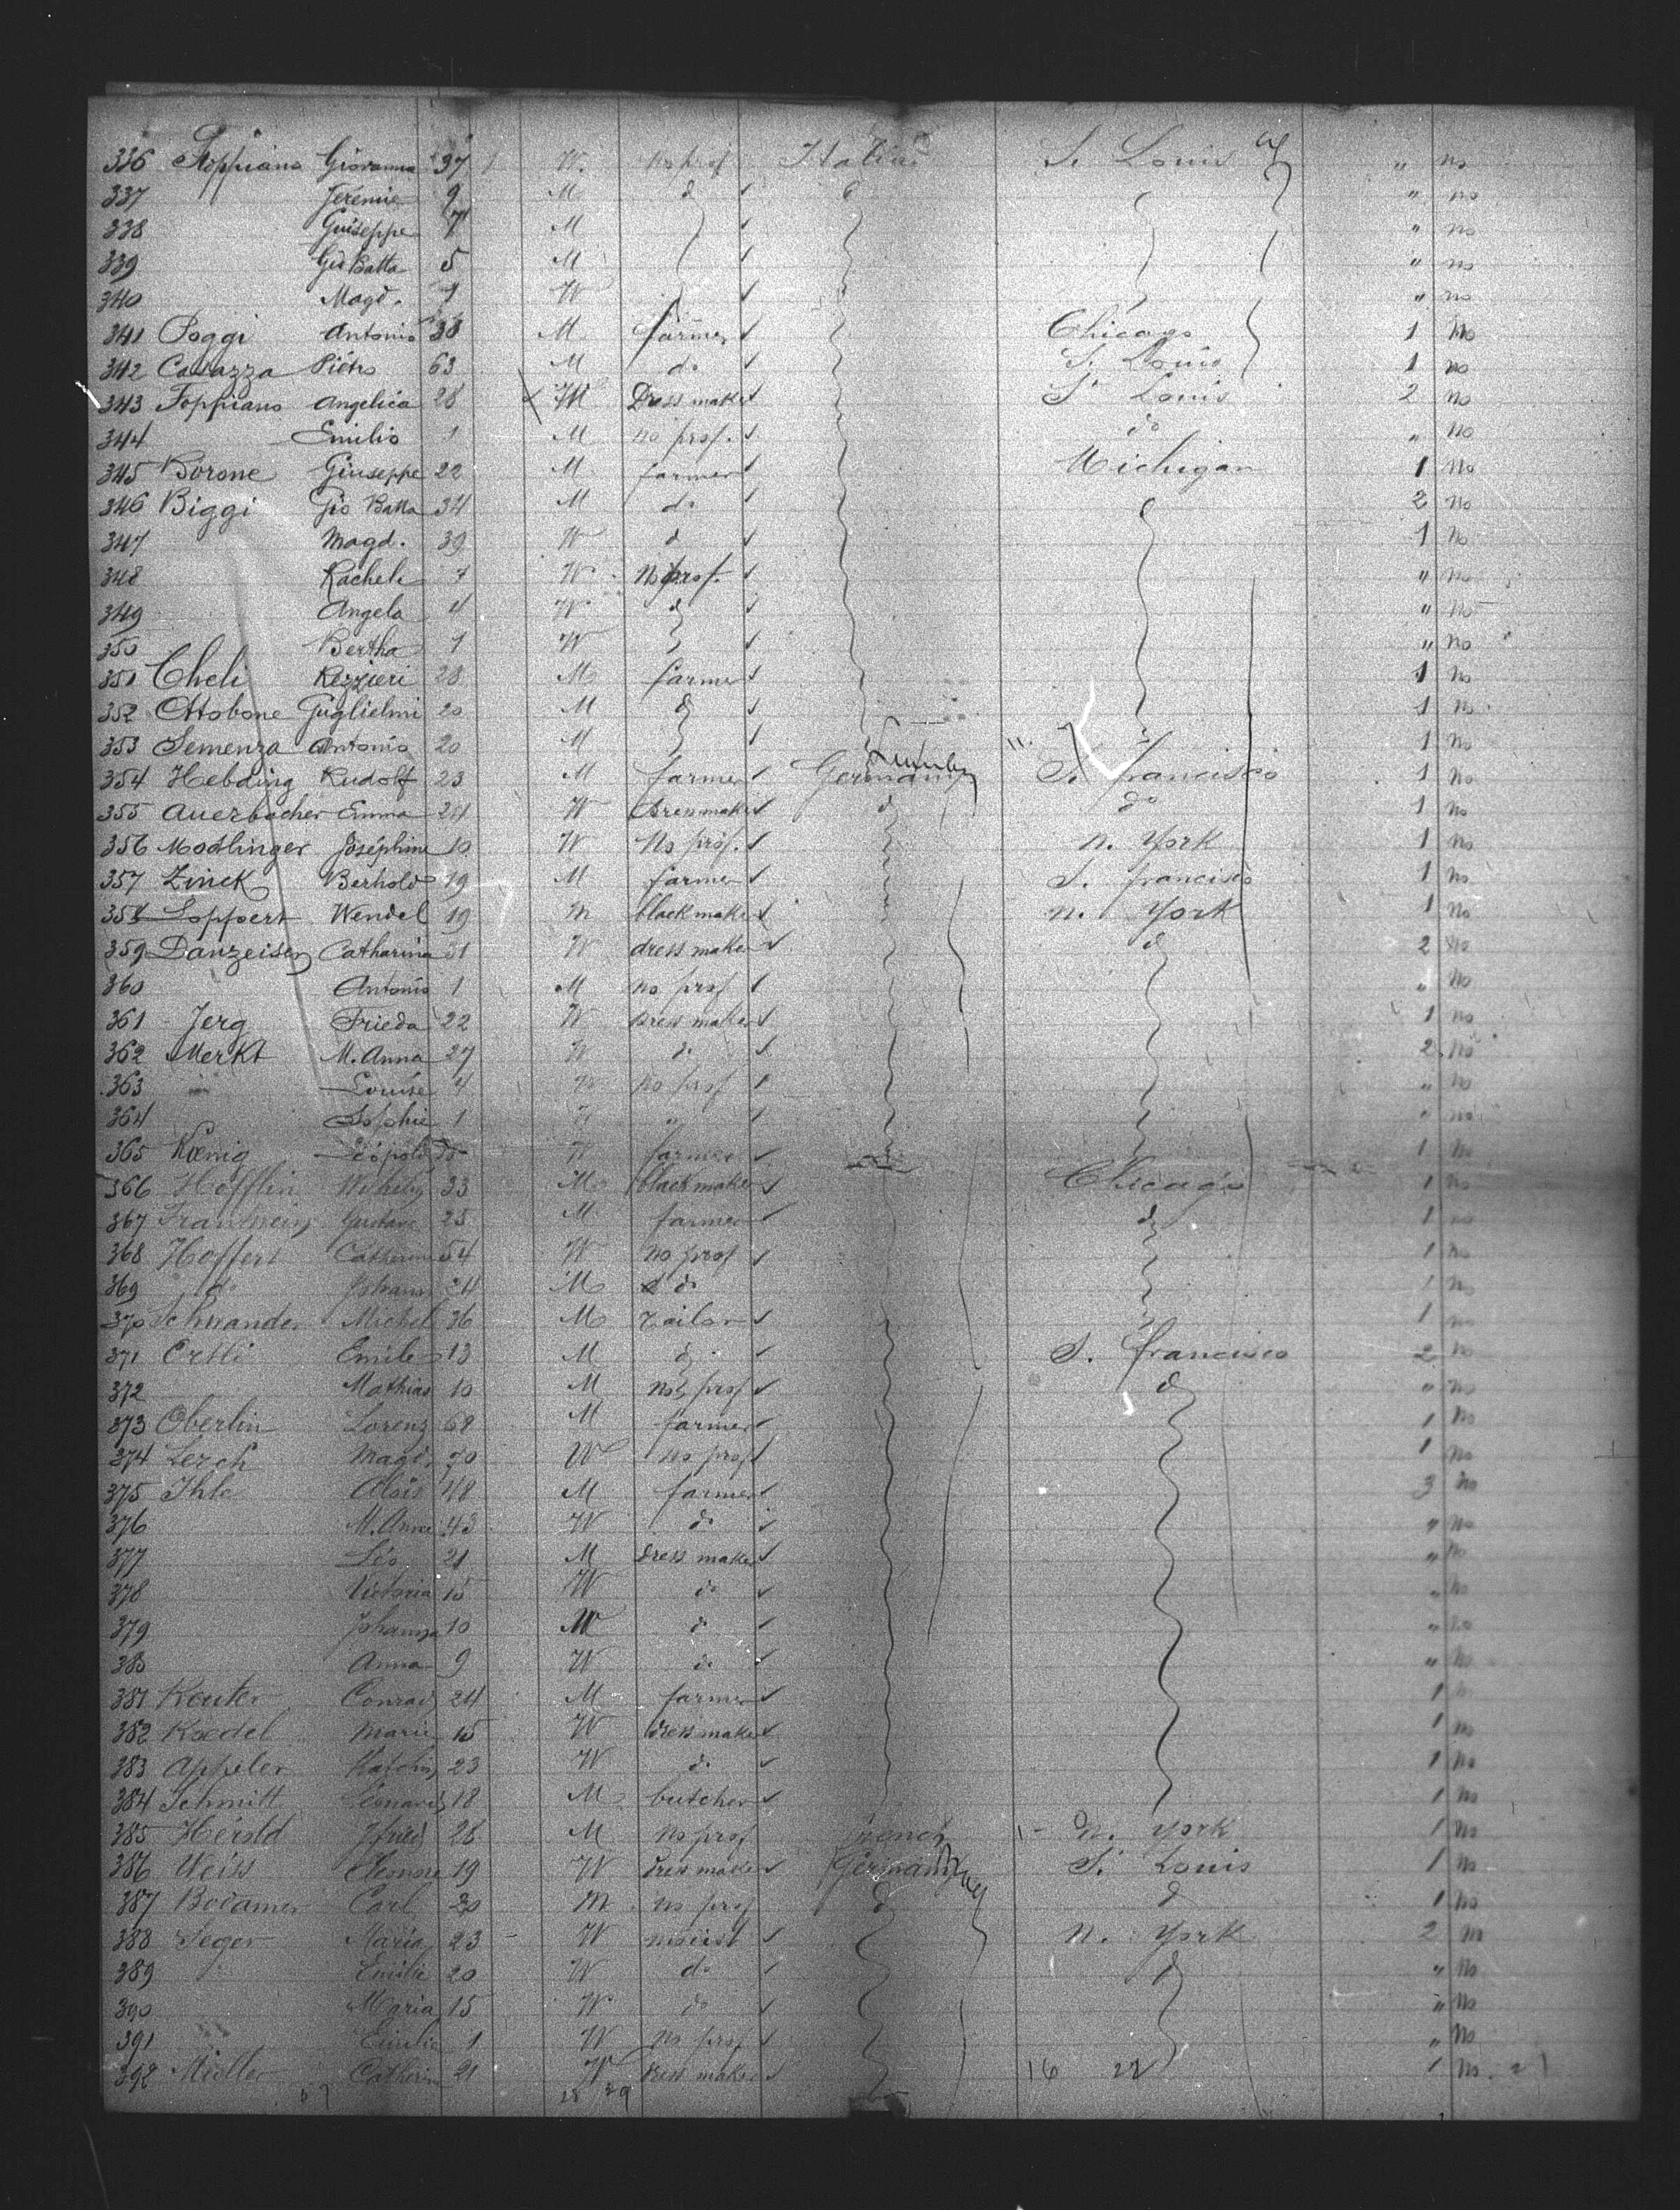 336 Foppiano Giovanna 37 W. no prof Italian S. Louis " no
337 Jérémie 9 M d " no
338 Guiseppe 7 M " no
339 Gio Batta 5 M " no
340 Magd. 9 W " no
341 Poggi Antonio 38 M farmer Chicago 1 no
342 Cavazza Piétro 63 M do S. Louis 1 no
343 Foppiano Angelica 28 W Dress maker S. Louis 2 no
344 Emilio 1 M no prof. do " no
345 Borone Giuseppe 22 M farmer Michigan 1 no
346 Biggi Gio Batta 34 M do 2 no
347 Magd. 39 W d 1 no
348 Rachele 7 W no prof. " no
349 Angela 4 W d " no
350 Bertha 1 W " no
351 Cheli Rezzieri 28 M farmer 1 no
352 Ottobone Guglielmi 20 M d 1 no
353 Semenza Antonio 20 M 1 no
354 Hebding Rudolf 23 M farmer Germany S. francisco 1 no
355 Auerbacher Emma 24 W Dressmaker d do 1 no
356 Modlinger Joséphine 10 W No prof. n. York 1 no
357 Zinck Berhold 19 M farmer S. francisco 1 no
358 Loppert Wendel 19 m blackmaker n. York 1 no
359 Danzeisen Catharina 31 W dress maker d 2 no
360 Antonio 1 M no prof " no
361 Jerg Frieda 22 W Dress maker 1 no
362 Merkt M. Anna 27 W d. 2 no
363 Louise 4 W no prof " no
364 Sophie 1 " " no
365 Kœnig Léopold farmer 1 no
366 Hofflin 33 M blackmaker Chicago 1 no
367 Gustave 25 M farmer d 1 no
368 Hoffert Catherine 54 W no prof 1 no
369 do Johann 24 M do 1 no
370 Schwander Michel 36 M Tailor 1 no
371 Ertli Emile 13 M d S. francisco 2 no
372 Mathias 10 M no prof d " no
373 Oberlin Lorenz 68 M farmer 1 no
374 Lerch Magd. 70 W no prof 1 no
375 Ihle Alois 48 M farmer 3 no
376 M. Anne 43 W do " no
377 Léo 21 M dress maker " no
378 Victoria 15 W do " no
379 Johanna 10 W d. " no
380 Anna 9 W do " no
381 Reuter Conrad 24 M farmer 1 no
382 Rœdel Marie 15 W dressmaker 1 no
383 Appeler 23 W d. 1 no
384 Schmitt Léonard 18 M butcher 1 no
385 Herold 28 M no prof french n. York 1 no
386 Weiss 19 W dress maker Germany S. Louis 1 no
387 Carl M no prof d d 1 no
388 Seger Maria 23 W n. York 2 no
389 Emilie 20 W do d " no
390 Maria 15 W do " no
391 Emilie 1 W no prof " no
392 Müller Catherin 21 W dress maker 16 22 1 no
28 29